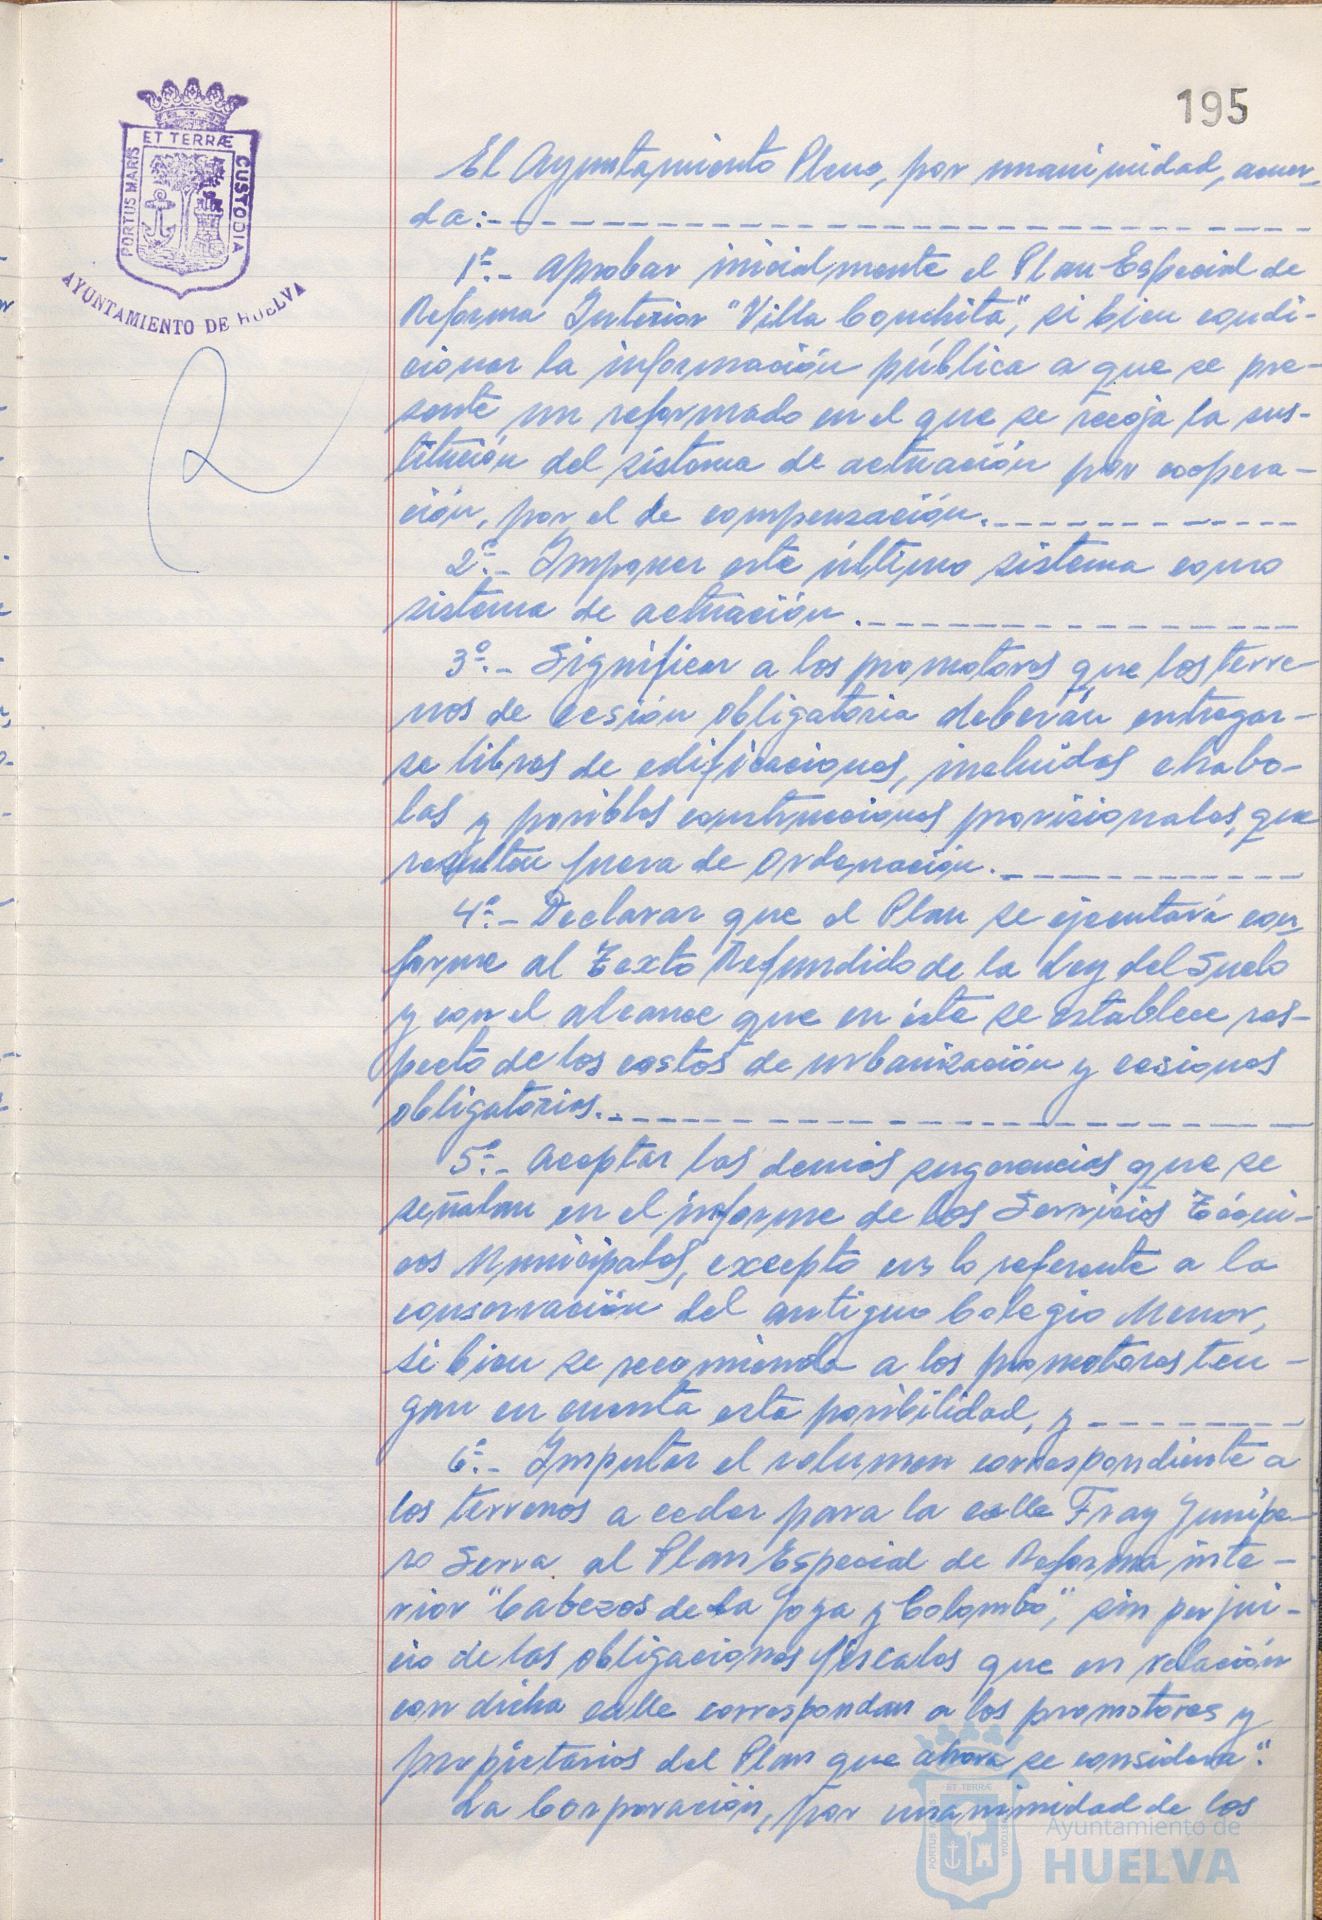 195
ET TERRÆ
PORTUS MARIS
CUSTODIA
AYUNTAMIENTO DE HUELVA
El Ayuntamiento Pleno, por unanimidad, acuer-
da:
1º.- Aprobar inicialmente el Plan Especial de
Reforma Interior "Villa Conchita", si bien condi-
cionar la información pública a que se pre-
sente un reformado en el que se recoja la sus-
titución del sistema de actuación por coopera-
ción, por el de compensación.
2º.- Imponer este último sistema como
sistema de actuación.
3º.- Significar a los promotores que los terre-
nos de cesión obligatoria deberán entregar-
se libres de edificaciones, incluidas chabo-
las y posibles construcciones provisionales, que
resulten fuera de Ordenación.
4º.- Declarar que el Plan se ejecutará con
forme al Texto Refundido de la Ley del Suelo
y con el alcance que en éste se establece res-
pecto de los costos de urbanización y cesiones
obligatorias.
5º.- Aceptar las demás sugerencias que se
señalan en el informe de los Servicios Técni-
cos Municipales, excepto en lo referente a la
conservación del antiguo Colegio Menor,
si bien se recomienda a los promotores ten-
gan en cuenta esta posibilidad, y
6º.- Imputar el volumen correspondiente a
los terrenos a ceder para la calle Fray Junípe-
ro Serra al Plan Especial de Reforma inte-
rior "Cabezos de la Joya y Colombo", sin perjui-
cio de las obligaciones fiscales que en relación
con dicha calle correspondan a los promotores y
propietarios del Plan que ahora se considera".
La Corporación, por unanimidad de los
ET TERRÆ
PORTUS MARIS
CUSTODIA
Ayuntamiento de
HUELVA